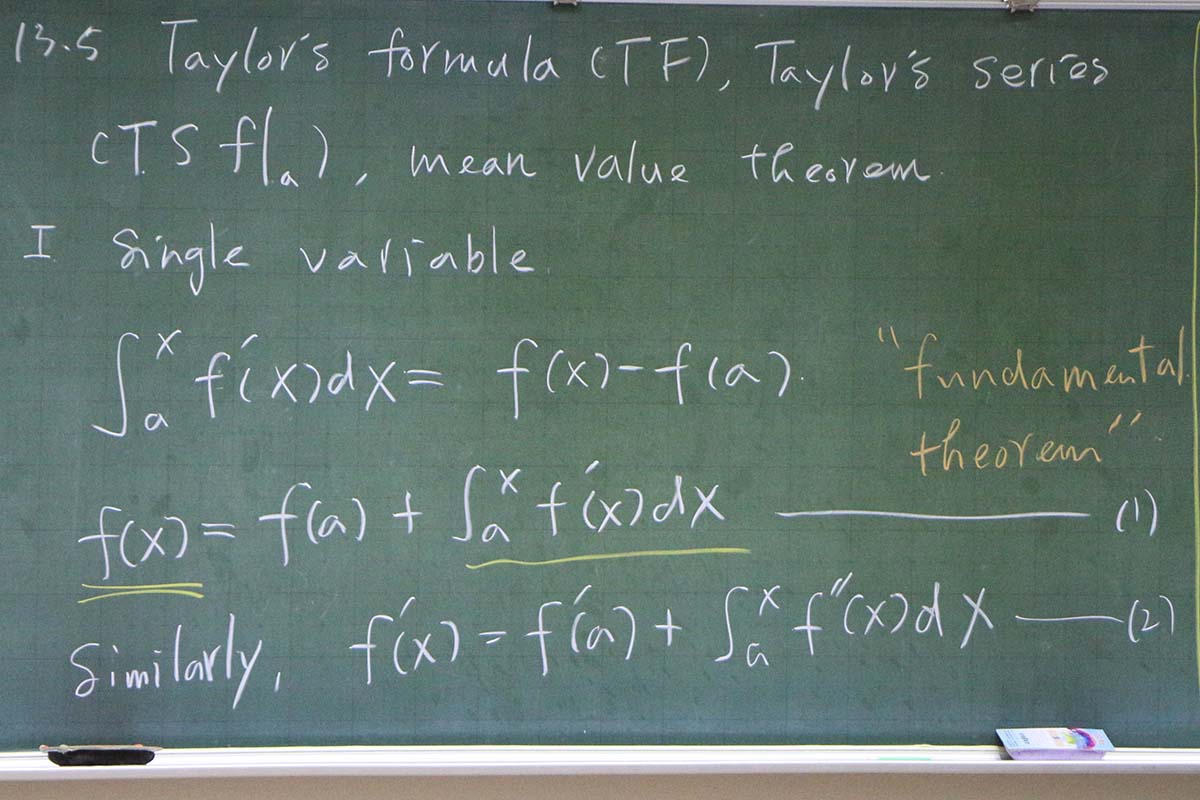 13.5 Taylor's formula (TF), Taylor's series
(TS f|ₐ), mean value theorem.
I Single variable.
∫ₐˣ f′(x)dx = f(x) - f(a).
"fundamental
theorem".
f(x) = f(a) + ∫ₐˣ f′(x)dx ——— (1)
Similarly, f′(x) = f′(a) + ∫ₐˣ f″(x)dx ——— (2)